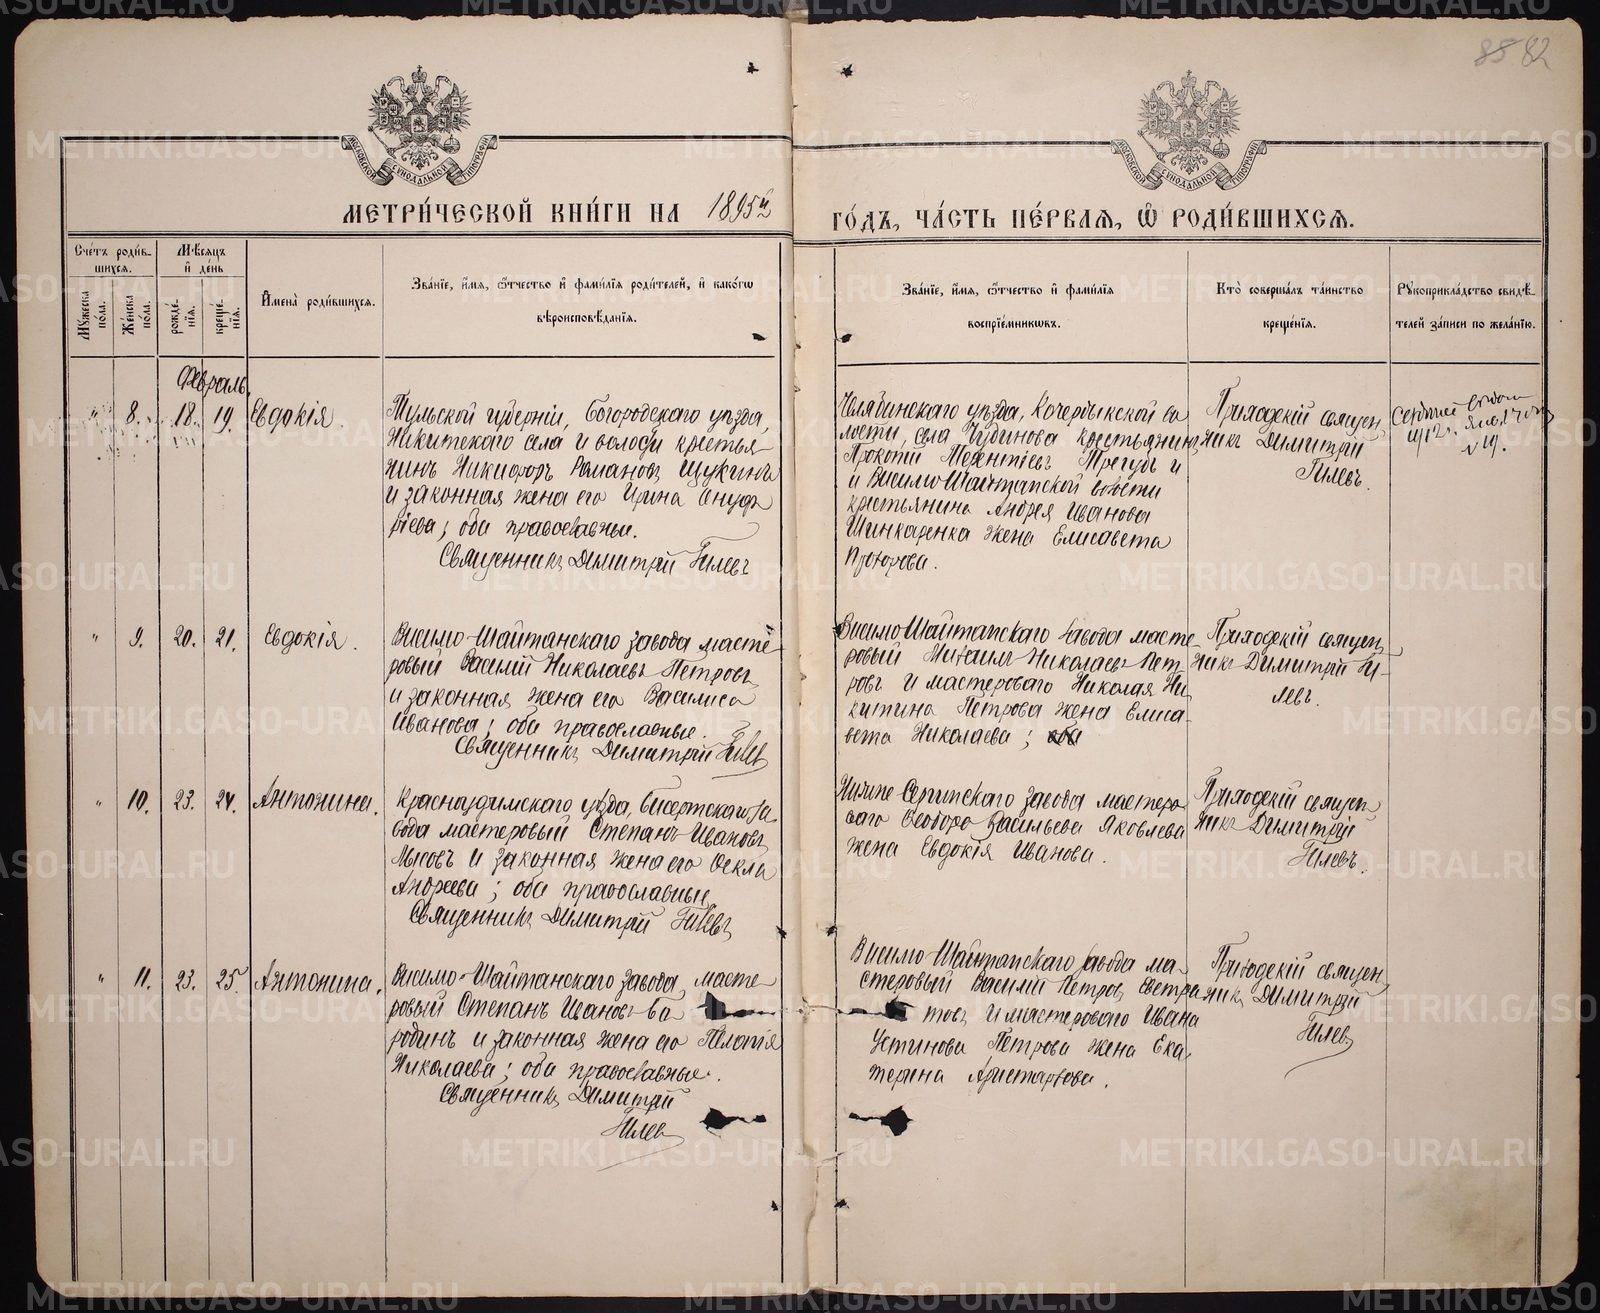 85 82
МОСКОВСКОЙ СУНОДАЛЬНОЙ ТИПОГРАФИИ
МОСКОВСКОЙ СУНОДАЛЬНОЙ ТИПОГРАФИИ
МЕТРИ́ЧЕСКОЙ КНИ́ГИ НА 1895й
ГО́ДЪ, ЧА́СТЬ ПЕ́РВАЯ, Ѡ РОДИ́ВШИХСЯ.
Сче́тъ роди́в-
шихся.
Мꙋжеска по́ла.
Же́нска по́ла.
Мѣсяцъ и де́нь
рожде́-нїя.
креще́-нїя.
И҆мена̀ роди́вшихся.
Зва́нїе, и҆́мя, ѻ҆́тчество и҆ фами́лїя роди́телей, и҆ како́гѡ
вѣроисповѣ́данїя.
Зва́нїе, и҆́мя, ѻ҆́тчество и҆ фами́лїя
воспрїе́мникѡвъ.
Кто̀ соверша́лъ та́инство
креще́нїя.
Рꙋкоприкла́дство свидѣ́-
телей за́писи по жела́нїю.
Февраль.
" 8. 18. 19. Евдокія.
Тульской губерніи, Богородскаго уѣзда,
Никитскаго села и волости крестья-
нинъ Никифоръ Романовъ Щукинъ
и законная жена его Ирина Онуф
ріева; оба православные.
Священникъ Димитрій Гилевъ
Челябинскаго уѣзда, Кочердыкской во
лости, села Чудинова крестьянинъ
Прокопій Терентіевъ Трегубъ и
и Висимо-Шайтанской волости
крестьянина Андрея Иванова
Шинкаренка жена Елисавета
Прохорова.
Приходскій священ
никъ Димитрій
Гилевъ.
1912 г.
№ 19.
" 9. 20. 21. Евдокія.
Висимо-Шайтанскаго завода масте
ровый Василій Николаевъ Петровъ
и законная жена его Василиса
Иванова; оба православные.
Священникъ Димитрій Гилевъ
Висимо-Шайтанскаго завода масте
ровый Михаилъ Николаевъ Пет-
ровъ и мастероваго Николая Ни
китина Петрова жена Елиса-
вета Николаева; оба
Приходскій священ
никъ Димитрій Ги-
левъ.
" 10. 23. 24. Антонина.
Красноуфимскаго уѣзда, Бисертскаго за
вода мастеровый Степанъ Ивановъ
Мысовъ и законная жена его Ѳекла
Андреева; оба православные.
Священникъ Димитрій Гилевъ
Нижне-Сергинскаго завода мастеро-
ваго Ѳеодора Васильева Яковлева
жена Евдокія Иванова.
Приходскій священ
никъ Димитрій
Гилевъ.
" 11. 23. 25. Антонина.
Висимо-Шайтанскаго завода масте
ровый Степанъ Ивановъ Бо
родинъ и законная жена его Пелагія
Николаева; оба православные.
Священникъ Димитрій
Гилевъ
Висимо-Шайтанскаго завода ма-
стеровый Василій Петровъ
и мастероваго Ивана
Устинова Петрова жена Ека
терина Аристархова.
Приходскій священ
никъ Димитрій
Гилевъ
METRIKI.GASO-URAL.RU